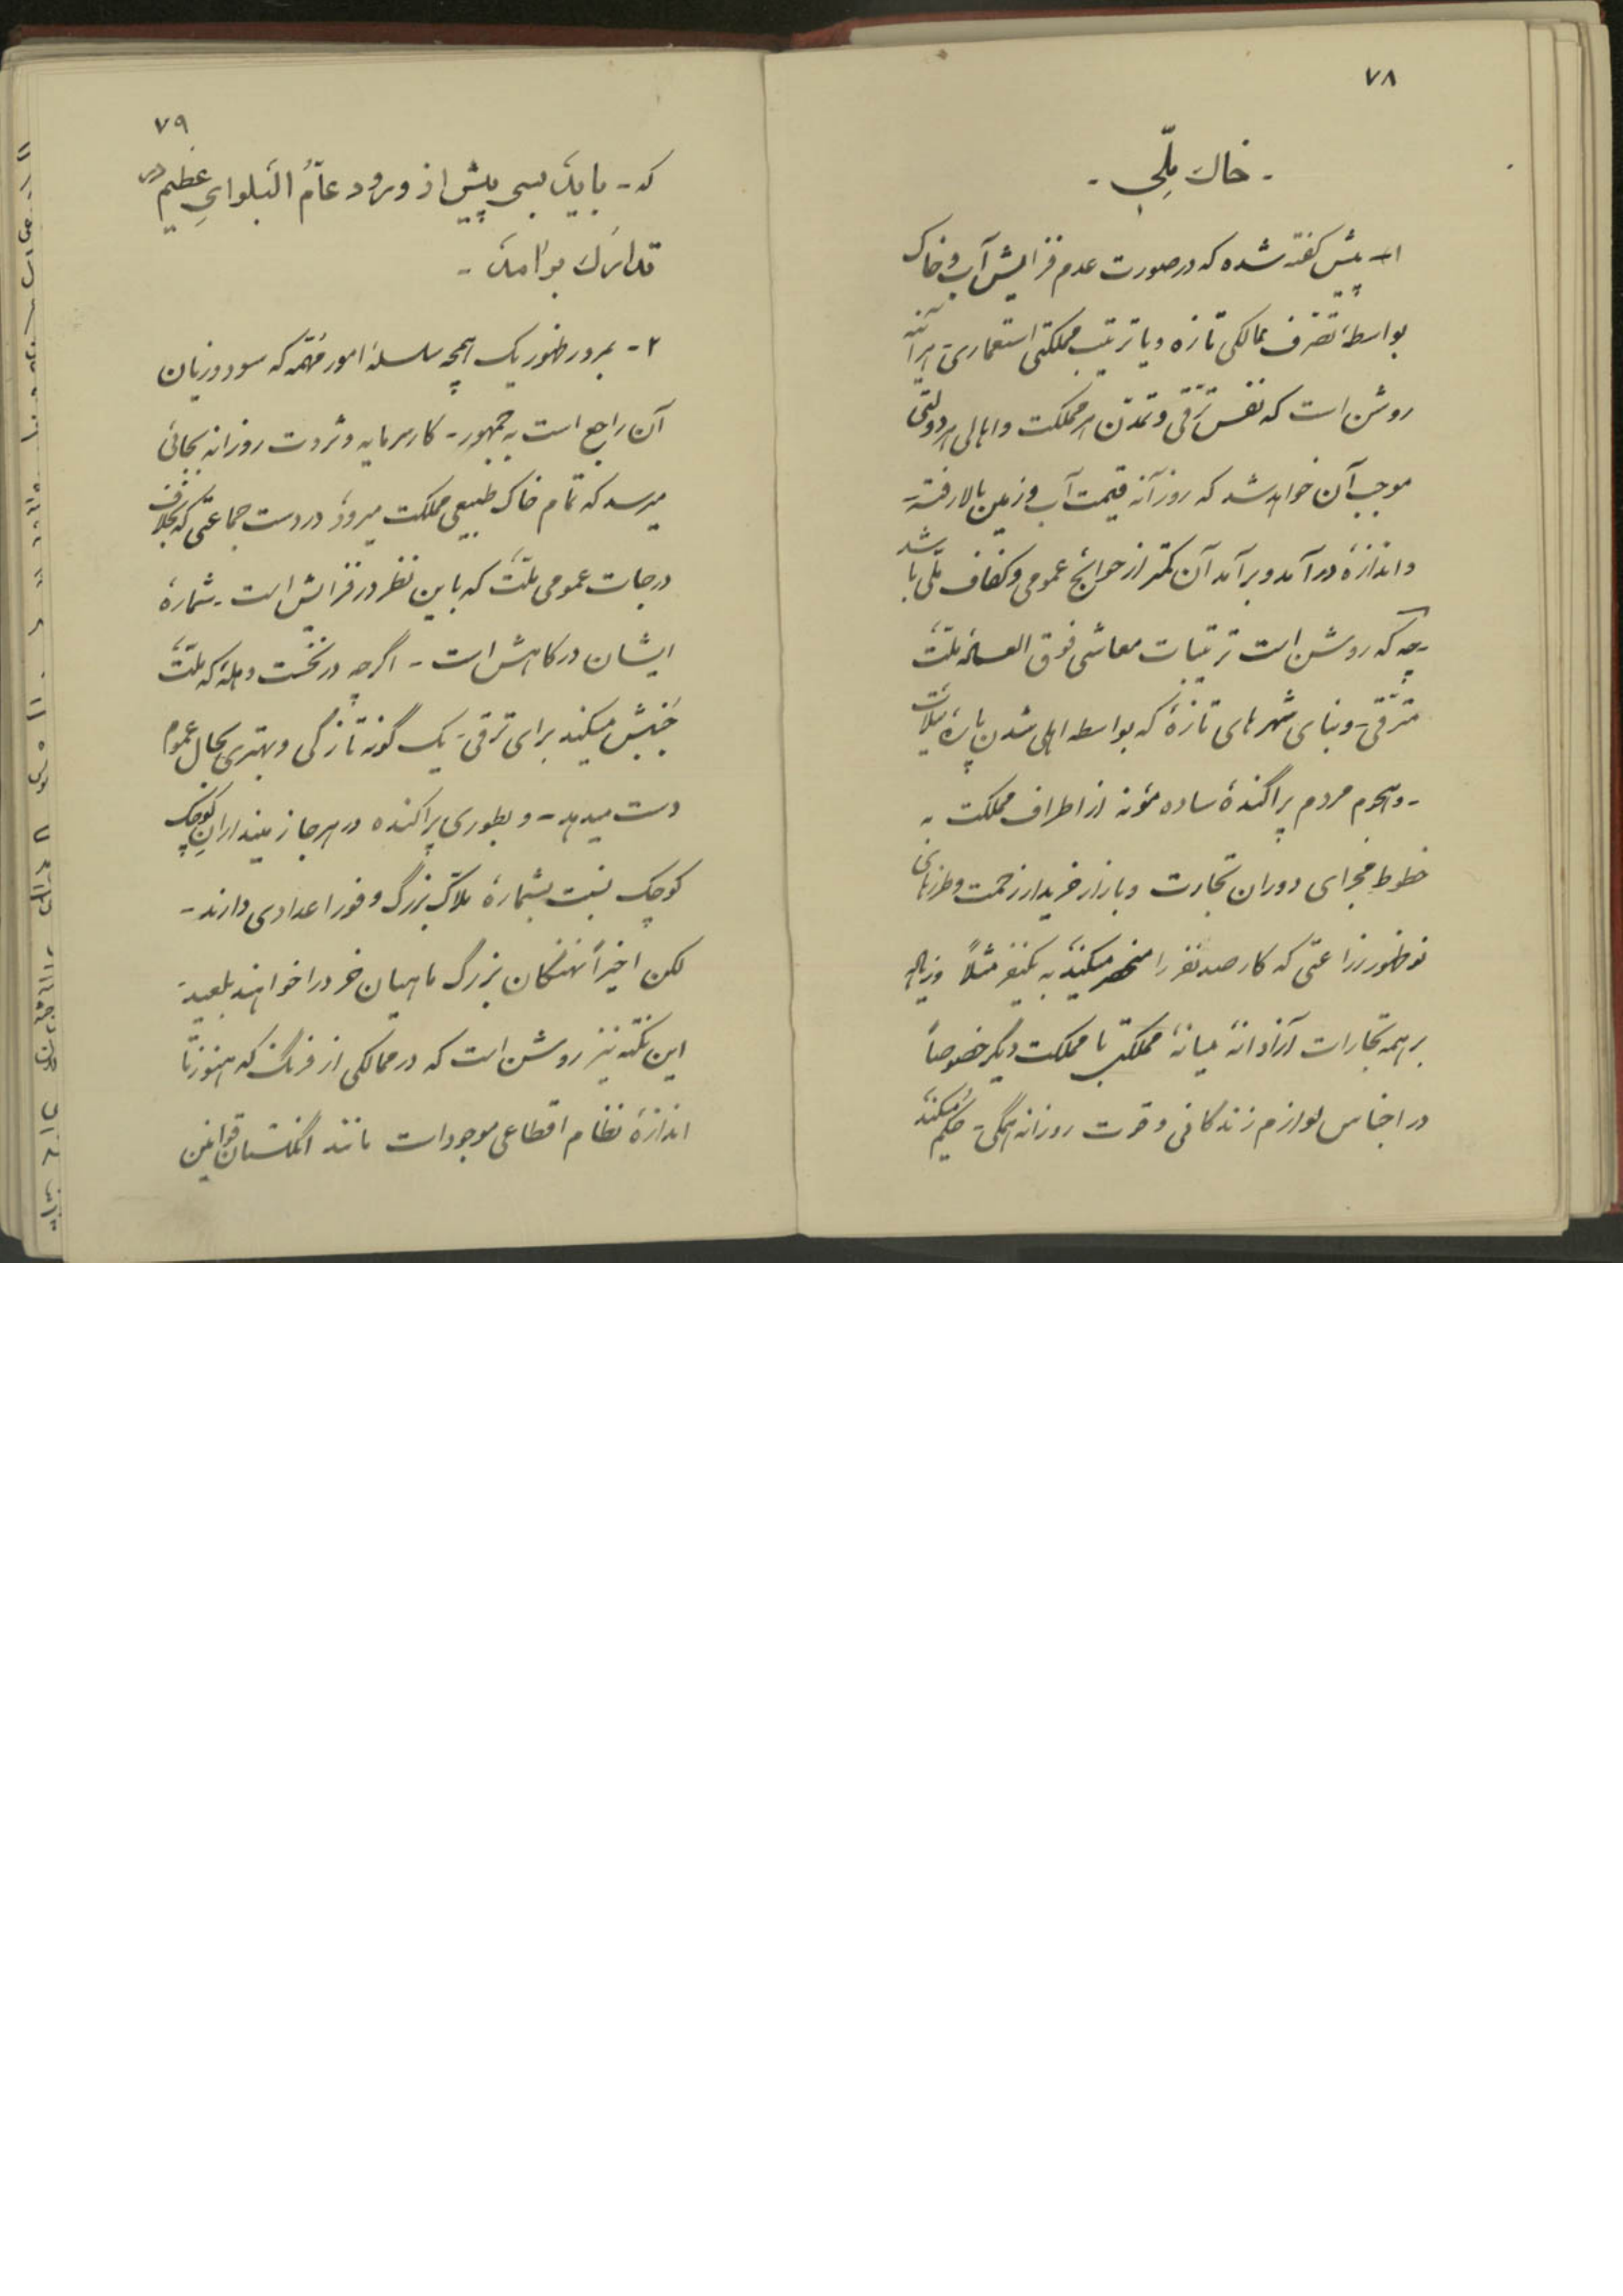 ۷۸
- خاك مِلّي -
۱- پیش گفته شده که در صورت عدم فزایش آب و خاک
بواسطهٔ تصرف ممالکی تازه و یا ترتیب مملکتی استعماری- هرآئنه
روشن است که نفس ترّقی و تمدّن هر مملکت و اهالی هر دولتی
موجب آن خواهد شد که روزآنه قیمت آب و زمین بالا رفته-
و اندازهٔ درآمد و برآمد آن کمتر از حوائج عمومی و کفاف ملّی باشد
-چه که روشن است ترتیبات معاشی فوق العسادهٔ ملّت
مترّقی- و بنای شهرهای تازهٔ که بواسطه اهلی شدن پارهٔ
- و هجوم مردم پراگندهٔ ساده مؤنه از اطراف مملکت به
خطوطِ مجرای دوران تجارت و بازار خریدار زحمت و طرزهای
نوظهور زراعتی که کار صد نفر را منحصر میکند به یکنفر مثلاً
بر همه تجارات آزادانهٔ میانهٔ مملکتی با مملکت دیگر خصوصاً
در اجناس لوازم زندکانی و قوت روزانه همگی- حکم میکند
۷۹
که - باید بسی پیش از ورود عامُّ البَلوایِ عظیم در
تدارک بر آمد -
۲- بمرور ظهور یک همچه سلسلهٔ امور مُهمّه که سود و زیان
آن راجع است به جمهور- کار سرمایه و ثروت روزانه بجائی
میرسد که تمام خاک طبیعی مملکت میرود در دست جماعتی که بخلاف
درجات عمومی ملّت که باین نظر در فزایش است - شمارهٔ
ایشان در کاهش است - اگرچه در نخست وهله که ملّت
جُنبش میکند برای ترقی- یک گونه تازگی و بهتری بحال عموم
دست میدهد - و بطوری پراکنده در هرجا زمیندارانِ کوچک
کوچک نسبت بشمارهٔ ملاّک بزرگ وفور اعدادی دارند -
لکن اخیراً نهنگان بزرگ ماهیان خورد را خواهند بلعید-
این نکته نیز روشن است که در ممالکی از فرنگ که هنوز تا
اندازهٔ نظام اقطاعی موجود است مانند انگلستان قوانین